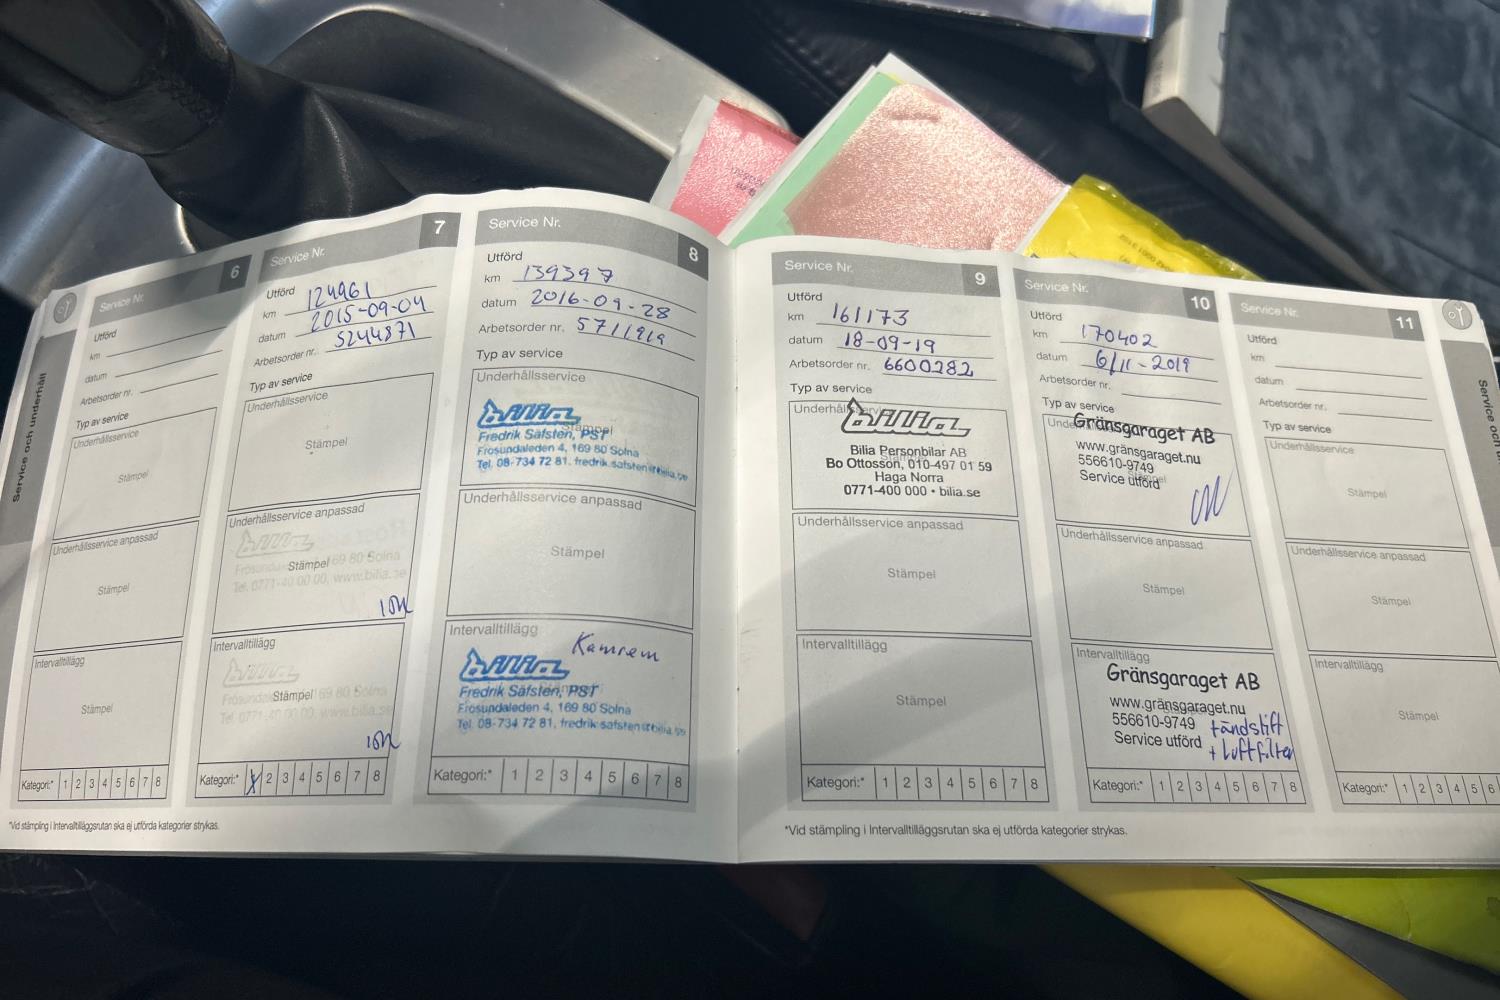 Service och underhåll
Service Nr.
6
Utförd
km
datum
Arbetsorder nr.
Typ av service
Underhållsservice
Stämpel
Underhållsservice anpassad
Stämpel
Intervalltillägg
Stämpel
Kategori:* 1 2 3 4 5 6 7 8
Service Nr.
7
Utförd
km 124961
datum 2015-09-04
Arbetsorder nr. 5244871
Typ av service
Underhållsservice
Stämpel
Underhållsservice anpassad
bilia
Stämpel 169 80 Solna
Tel. 0771-40 00 00, www.bilia.se
Intervalltillägg
bilia
Stämpel 169 80 Solna
Tel. 0771-40 00 00, www.bilia.se
Kategori:* 1 2 3 4 5 6 7 8
*Vid stämpling i Intervalltilläggsrutan ska ej utförda kategorier strykas.
Service Nr.
8
Utförd
km 139397
datum 2016-09-28
Arbetsorder nr. 5711919
Typ av service
Underhållsservice
bilia
Stämpel
Fredrik Säfsten, PST
Frösundaleden 4, 169 80 Solna
Tel. 08-734 72 81, fredrik.safsten@bilia.se
Underhållsservice anpassad
Stämpel
Intervalltillägg
Kamrem
bilia
Fredrik Säfsten, PST
Frösundaleden 4, 169 80 Solna
Tel. 08-734 72 81, fredrik.safsten@bilia.se
Kategori:* 1 2 3 4 5 6 7 8
Service Nr.
9
Utförd
km 161173
datum 18-09-19
Arbetsorder nr. 6600282
Typ av service
Underhållsservice
bilia
Bilia Personbilar AB
Bo Ottosson, 010-497 01 59
Haga Norra
0771-400 000 • bilia.se
Underhållsservice anpassad
Stämpel
Intervalltillägg
Stämpel
Kategori:* 1 2 3 4 5 6 7 8
*Vid stämpling i Intervalltilläggsrutan ska ej utförda kategorier strykas.
Service Nr.
10
Utförd
km 170402
datum 6/11-2019
Arbetsorder nr.
Typ av service
Gränsgaraget AB
www.gränsgaraget.nu
556610-9749
Service utförd
Underhållsservice anpassad
Stämpel
Intervalltillägg
Gränsgaraget AB
www.gränsgaraget.nu
556610-9749
Service utförd
tändstift
+ Luftfilter
Kategori:* 1 2 3 4 5 6 7 8
Service Nr.
11
Utförd
km
datum
Arbetsorder nr.
Typ av service
Underhållsservice
Stämpel
Underhållsservice anpassad
Stämpel
Intervalltillägg
Stämpel
Kategori:* 1 2 3 4 5 6
Service och